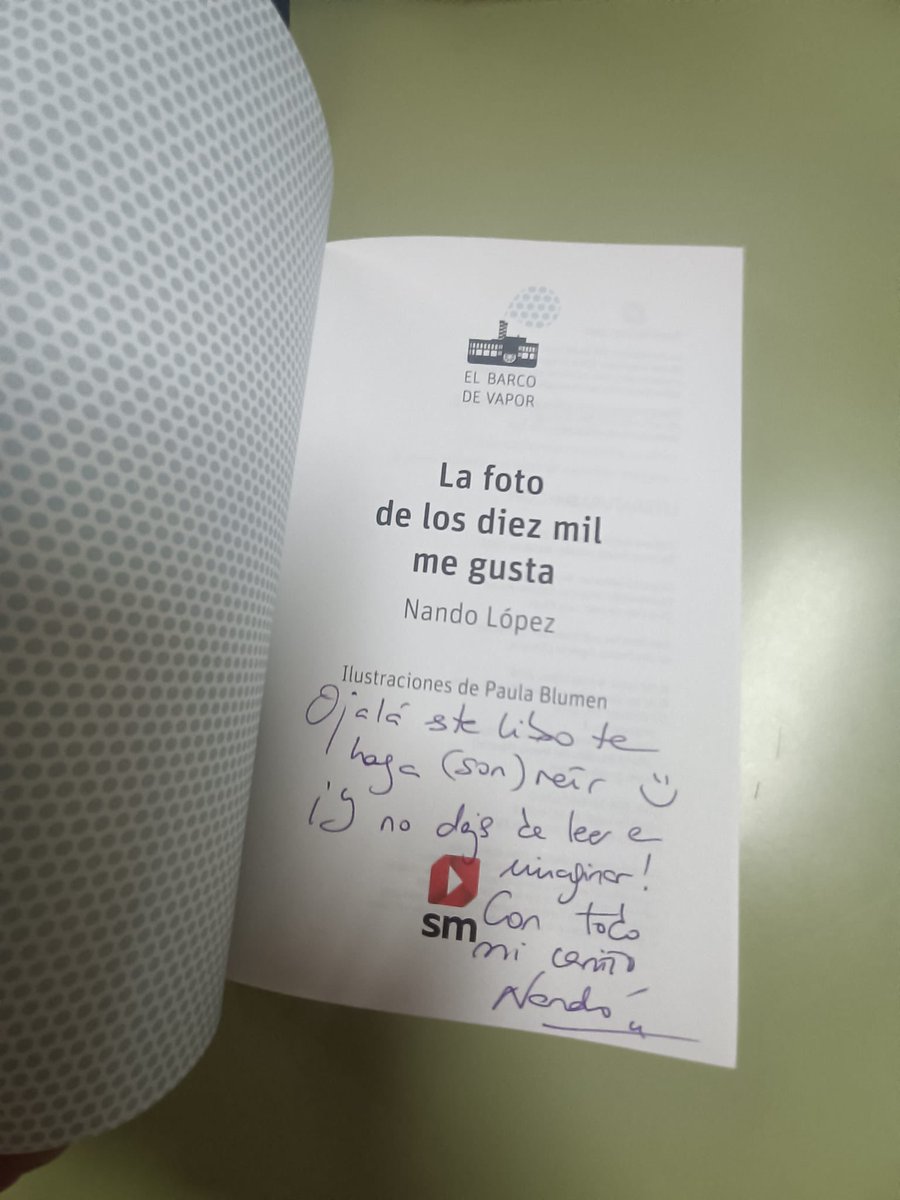 EL BARCO
DE VAPOR
La foto
de los diez mil
me gusta
Nando López
Ilustraciones de Paula Blumen
Ojalá este libro te
haga (son)reír :)
¡Y no dejes de leer e
imaginar!
sm
Con todo
mi cariño
Nando